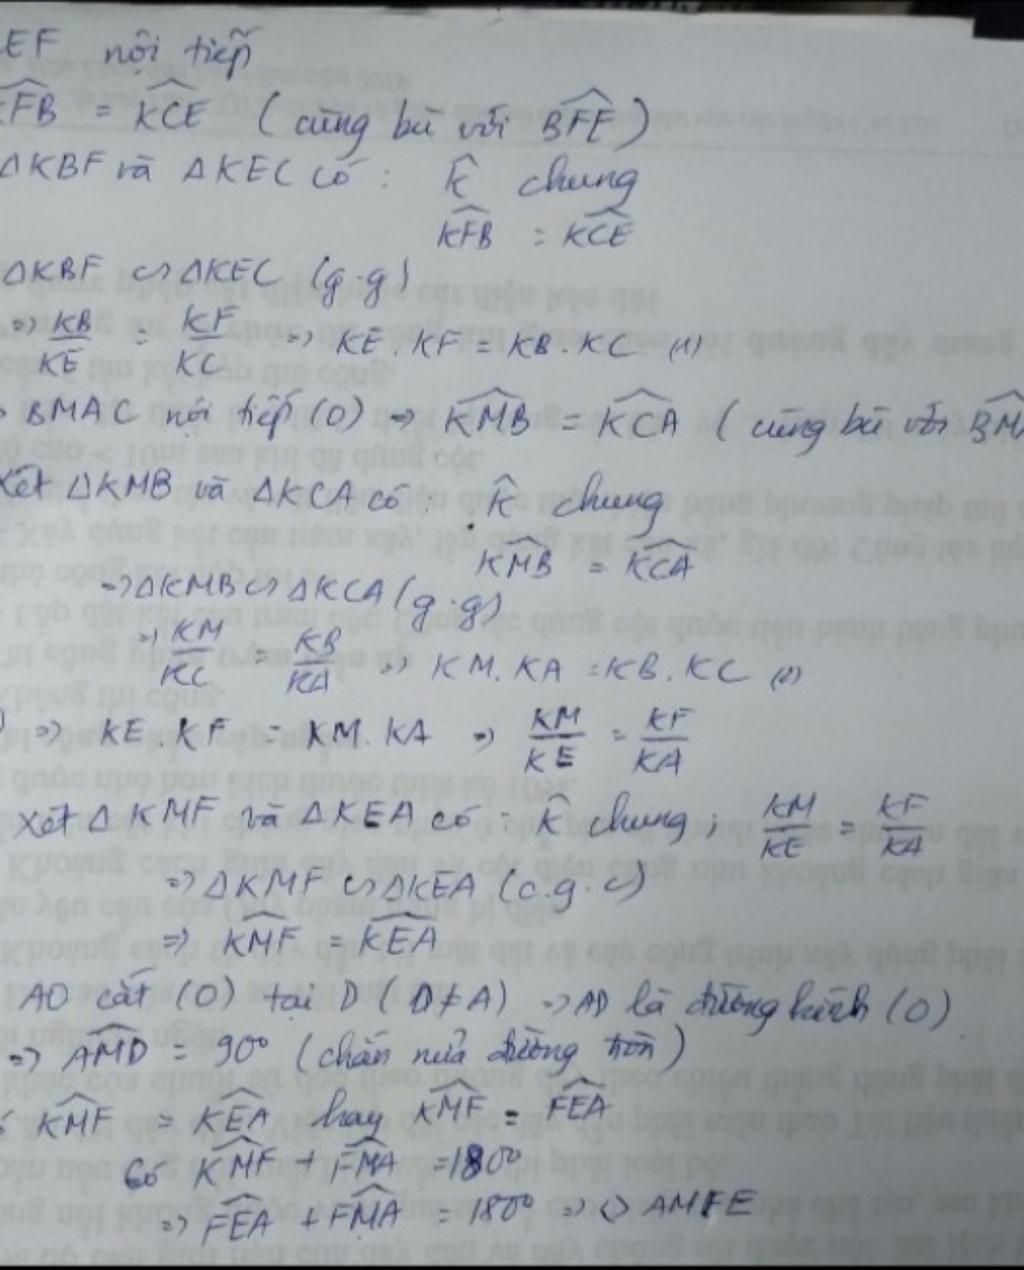 EF nội tiếp
KFB = KCE ( cùng bù với BFE )
ΔKBF và ΔKEC có : K̂ chung
KFB = KCE
ΔKBF ∽ ΔKEC (g.g)
⇒ KB/KE = KF/KC ⇒ KE.KF = KB.KC (1)
BMAC nội tiếp (O) ⇒ KMB = KCA ( cùng bù với BMA
Xét ΔKMB và ΔKCA có : K̂ chung
KMB = KCA
⇒ ΔKMB ∽ ΔKCA (g.g)
⇒ KM/KC = KB/KA ⇒ KM.KA = KB.KC (2)
) ⇒ KE.KF = KM.KA ⇒ KM/KE = KF/KA
Xét ΔKMF và ΔKEA có : K̂ chung ; KM/KE = KF/KA
⇒ ΔKMF ∽ ΔKEA (c.g.c)
⇒ KMF = KEA
AO cắt (O) tại D ( D≠A ) ⇒ AD là đường kính (O)
⇒ AMD = 90° (chắn nửa đường tròn)
KMF = KEA hay KMF = FEA
Có KMF + FMA = 180°
⇒ FEA + FMA = 180° ⇒ ◇ AMFE